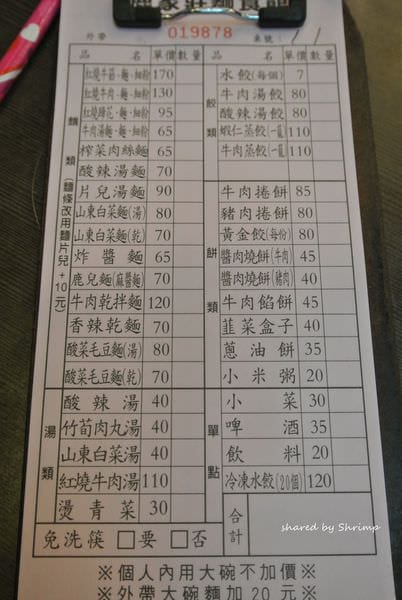 外帶 019878 桌號:
品名 單價 數量 品名 單價 數量
麵類(麵條改用麵片兒+10元)
紅燒牛筋、麵、細粉 170
紅燒牛肉、麵、細粉 130
紅燒蹄花、麵、細粉 95
牛肉湯麵、麵、細粉 65
榨菜肉絲麵 65
酸辣湯麵 70
片兒湯麵 90
山東白菜麵(湯) 80
山東白菜麵(乾) 70
炸醬麵 65
鹿兒麵(麻醬麵) 70
牛肉乾拌麵 120
香辣乾麵 70
酸菜毛豆麵(湯) 80
酸菜毛豆麵(乾) 70
湯類
酸辣湯 40
竹荀肉丸湯 40
山東白菜湯 40
紅燒牛肉湯 110
燙青菜 30
餃類
水餃(每個) 7
牛肉湯餃 80
酸辣湯餃 80
蝦仁蒸餃(一籠) 110
牛肉蒸餃(一籠) 110
餅類
牛肉捲餅 85
豬肉捲餅 80
黃金餃(每份) 80
醬肉燒餅(牛肉) 45
醬肉燒餅(豬肉) 40
牛肉餡餅 45
韮菜盒子 40
蔥油餅 35
小米粥 20
單點
小菜 30
啤酒 35
飲料 20
冷凍水餃(20個) 120
免洗筷 □要 □否 合計
shared by Shrimp
※個人內用大碗不加價※
※外帶大碗麵加20元※